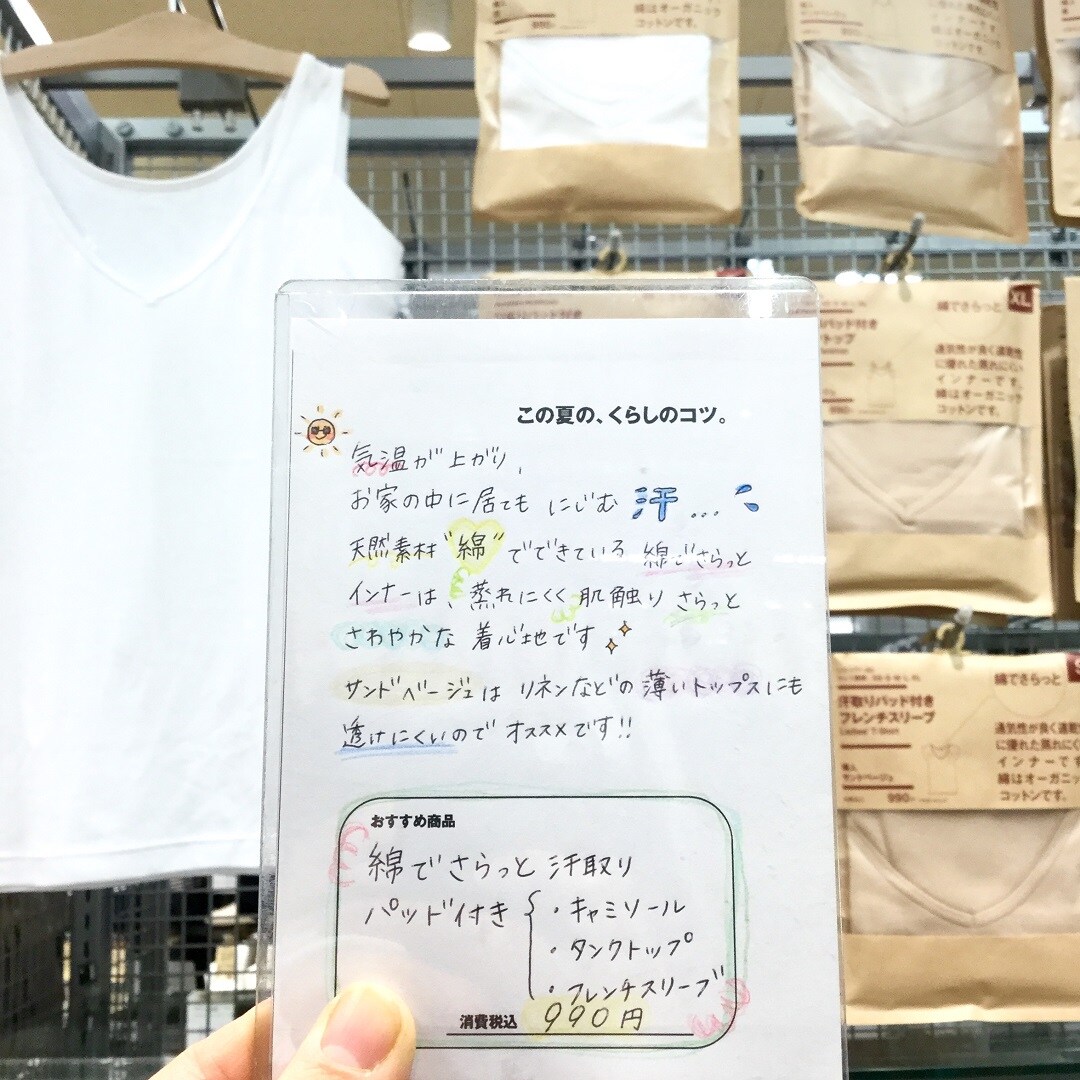 綿はオーガニック
コットンです。
990
この夏の、くらしのコツ。
気温が上がり、
お家の中に居ても にじむ 汗...
天然素材"綿"でできている 綿でさらっと
インナーは、蒸れにくく 肌触り さらっと
さわやかな 着心地です
サンドベージュは リネンなどの 薄いトップスにも
透けにくいので オススメです!!
おすすめ商品
綿でさらっと 汗取り
パッド付き
・キャミソール
・タンクトップ
・フレンチスリーブ
消費税込 990円
パッド付き
トップ
綿でさらっと
XL
通気性が良く速乾性
に優れた蒸れにくい
インナーです。
綿はオーガニック
コットンです。
990
汗取りパッド付き
フレンチスリーブ
Ladies' T-Shirt
婦人
サンドベージュ
990
綿でさらっと
通気性が良く速乾
に優れた蒸れにく
インナーです
綿はオーガニッ
コットンです。